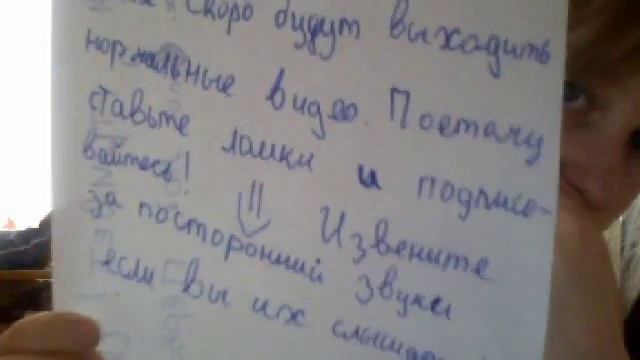 Скоро будут выходить
нормальные видео. Поетому
ставьте лайки и подписо-
вайтесь! Извените
за посторонний звуки
если вы их слышали